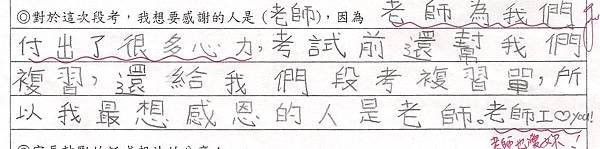 ◎對於這次段考，我想要感謝的人是(老師)，因為 老師為我們
付出了很多心力,考試前還幫我們
複習，還給我們段考複習單，所
以我最想感恩的人是老師。老師I♡you!
老師也愛妳!